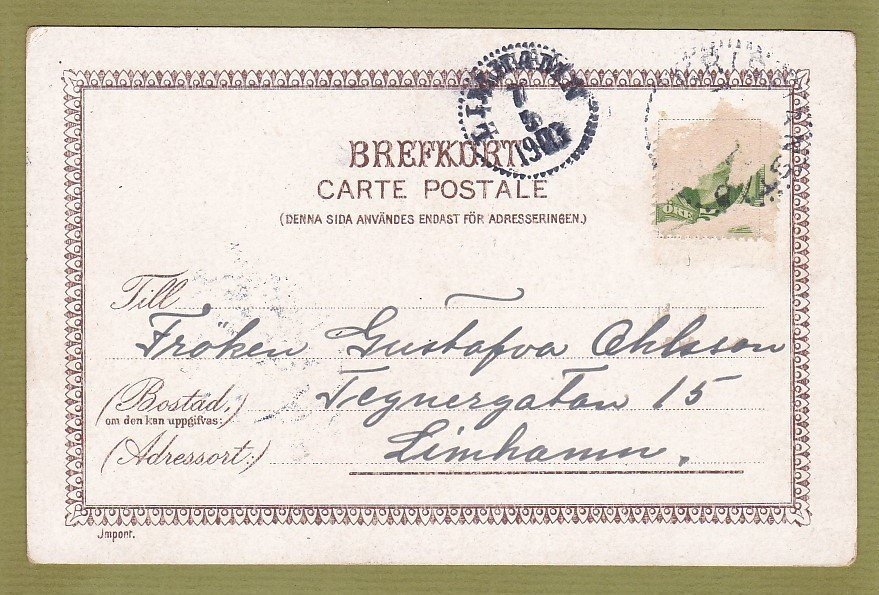 LIMHAMN
BREFKORT
CARTE POSTALE
(DENNA SIDA ANVÄNDES ENDAST FÖR ADRESSERINGEN.)
ÖRE
Till
Fröken Gustafva Ohlsson
(Bostad,) Tegnergatan 15
om den kan uppgifvas:
(Adressort:) Limhamn.
Import.